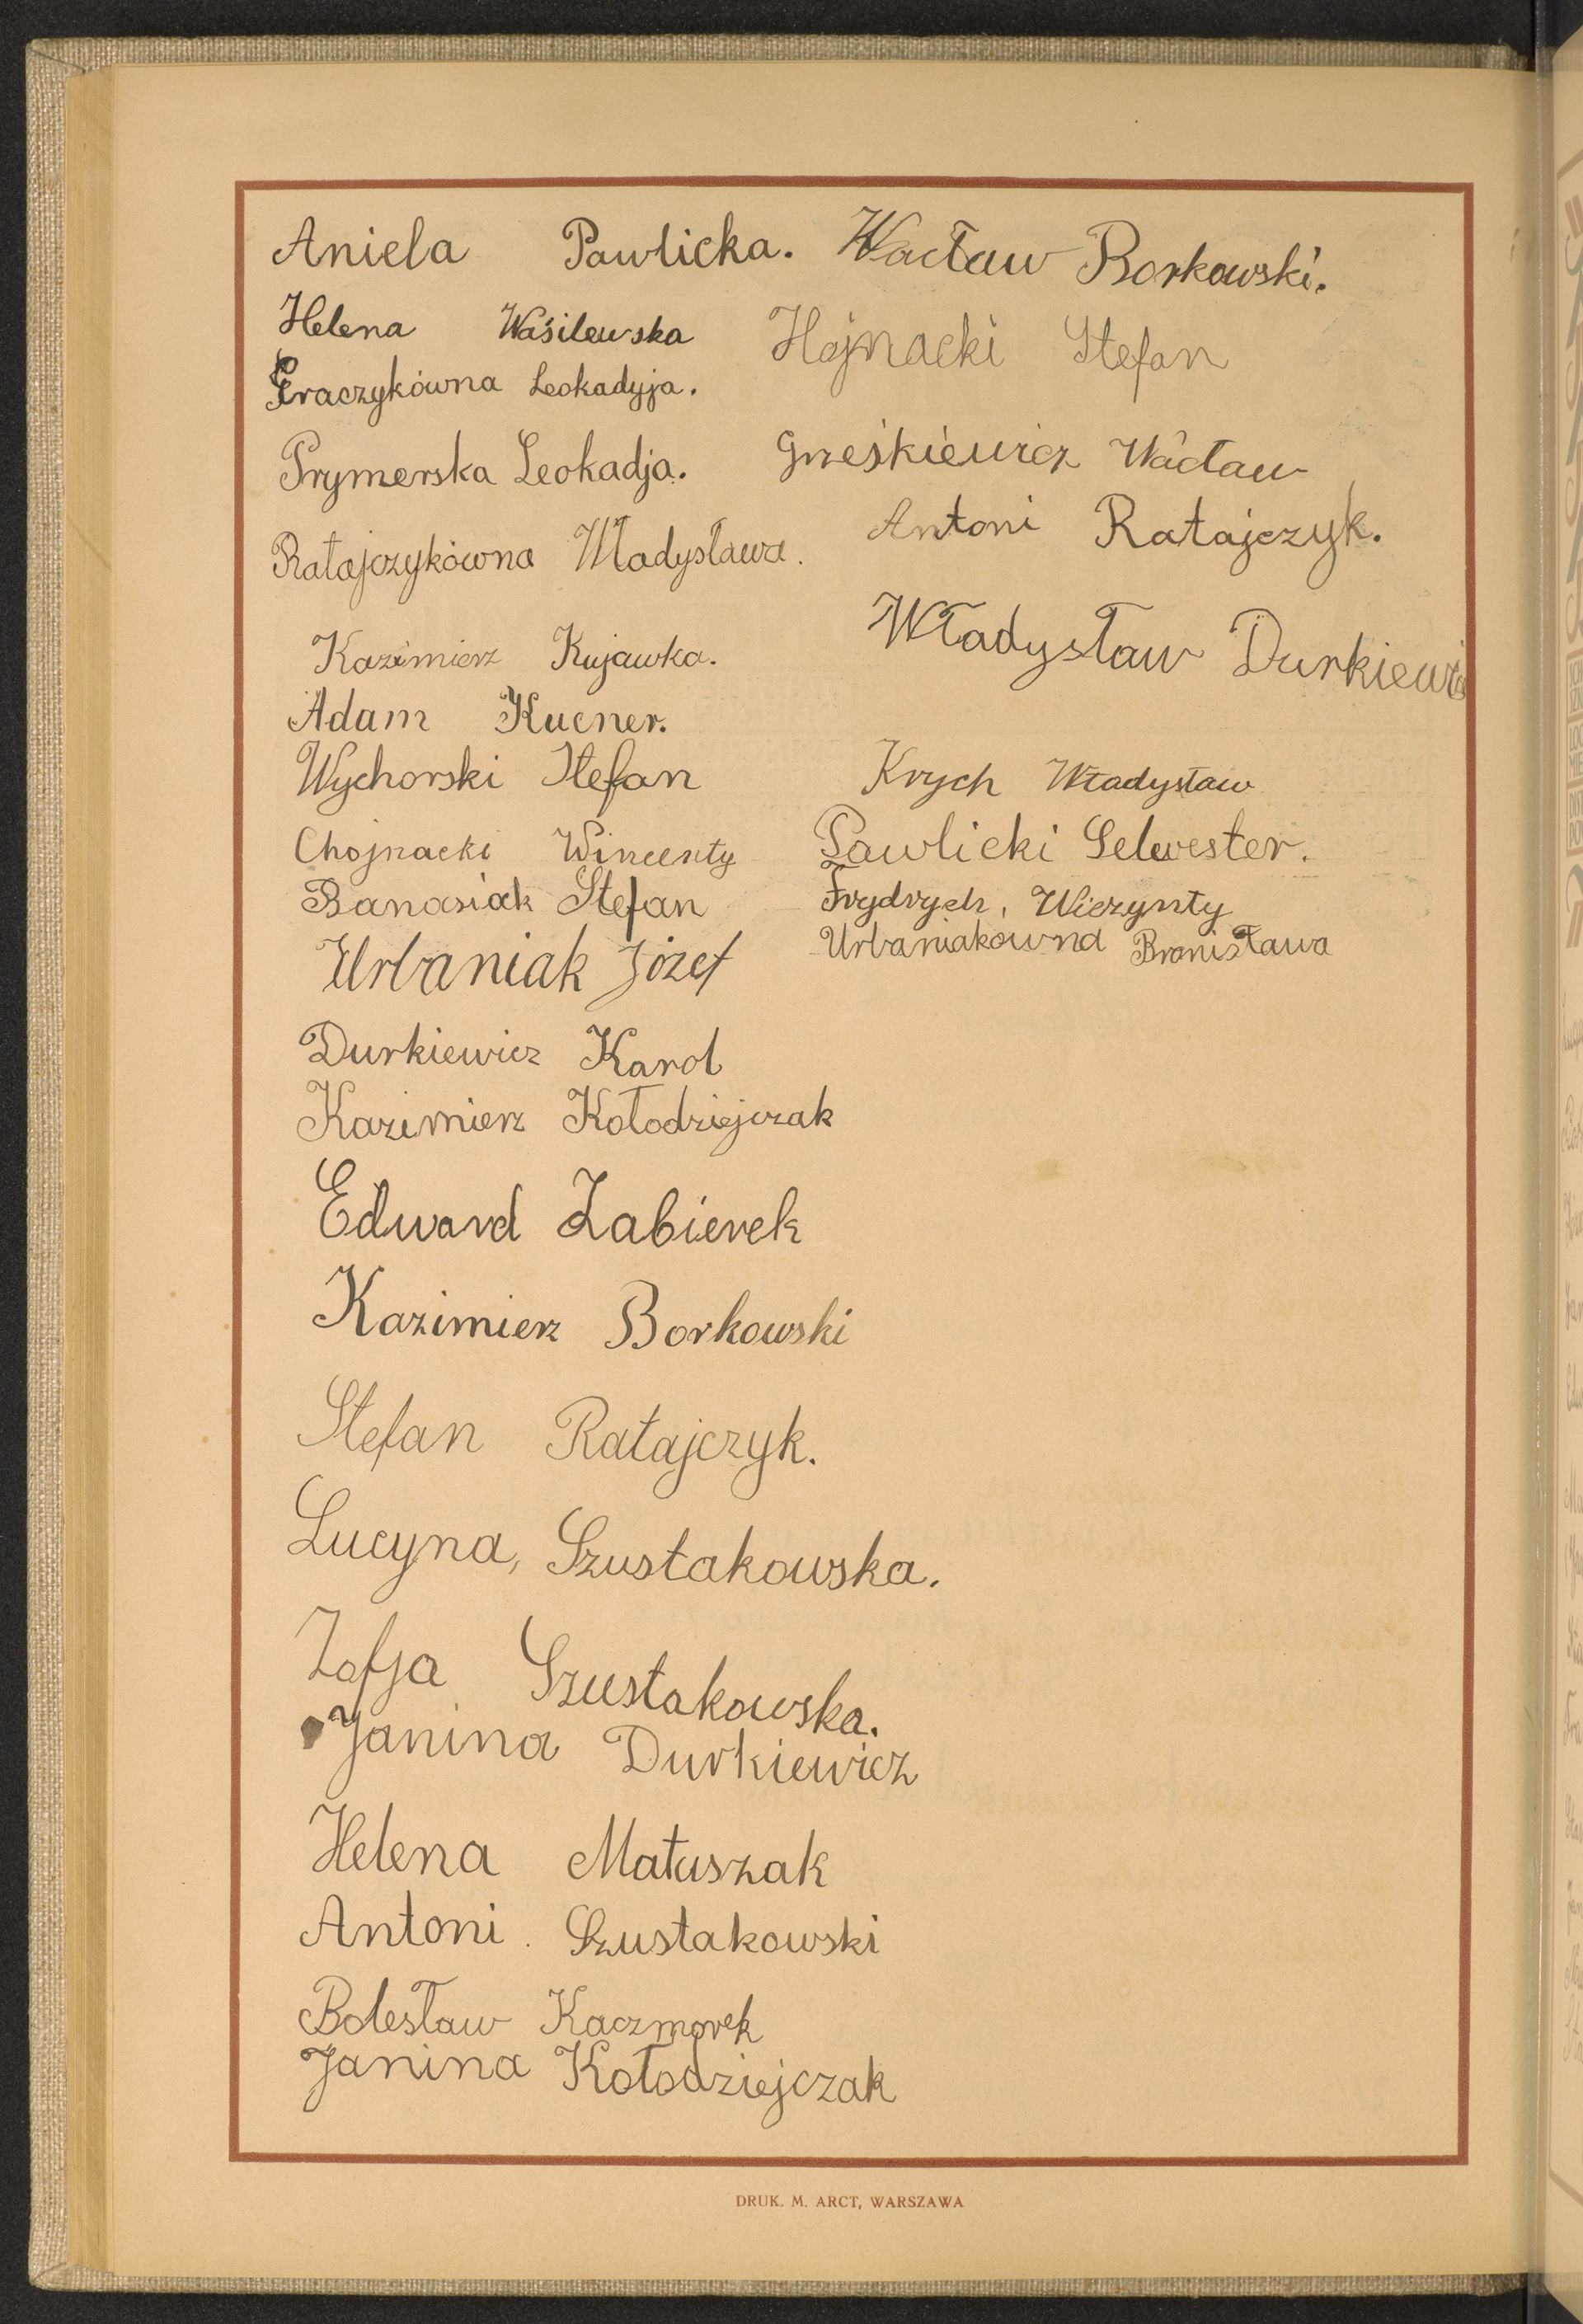 Aniela Pawlicka.
Helena Waśilewska
Graczykówna Leokadyja.
Prymerska Leokadja.
Ratajczykówna Władysława.
Kazimierz Kujawka.
Adam Kucner.
Wychorski Stefan
Chojnacki Wincenty
Banasiak Stefan
Urbaniak Józef
Durkiewicz Karol
Kazimierz Kołodziejczak
Edward Zabierek
Kazimierz Borkowski
Stefan Ratajczyk.
Lucyna, Szustakowska.
Zofja Szustakowska.
Janina Durkiewicz
Helena Matuszak
Antoni. Szustakowski
Bolesław Kaczmarek
Janina Kołodziejczak
Wacław Borkowski.
Hojnacki Stefan
Grześkiewicz Wacław
Antoni Ratajczyk.
Władysław Durkiewicz
Krych Władysław
Pawlicki Selwester.
Frydrych, Wiczynty
Urbaniakowna Bronisława
DRUK. M. ARCT, WARSZAWA